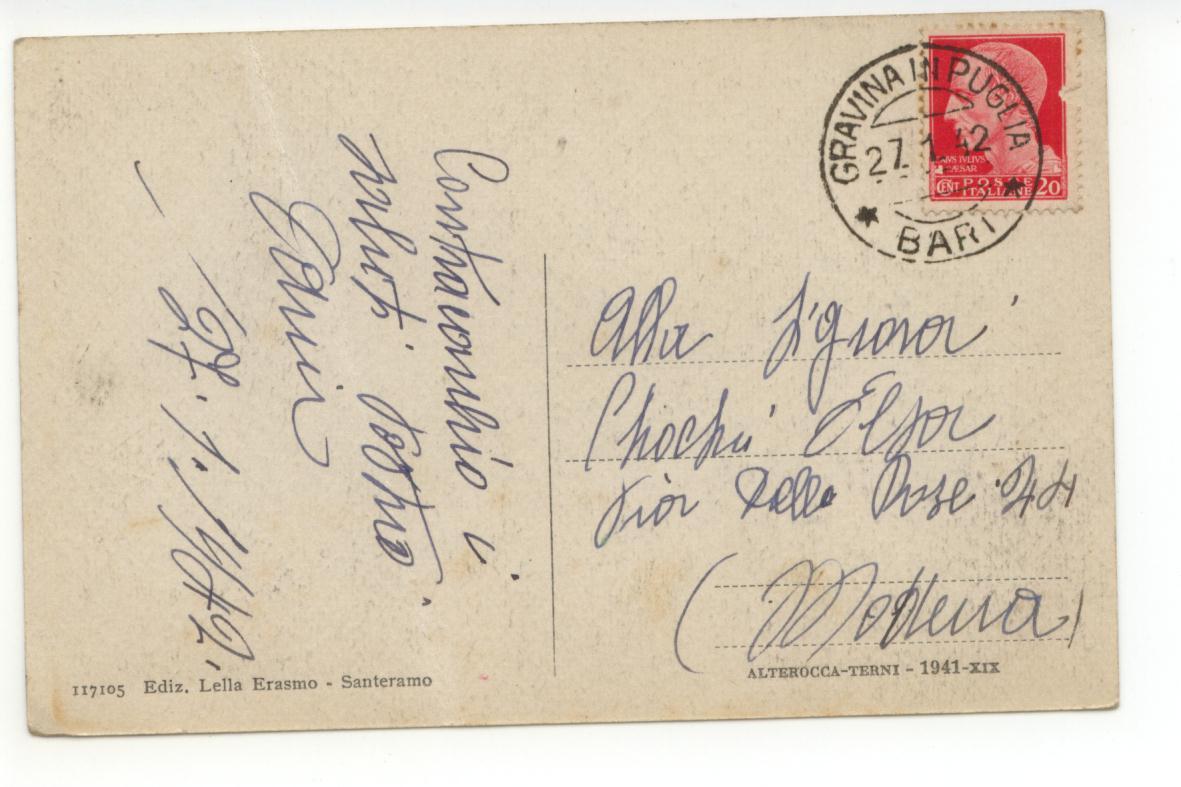 GRAVINA IN PUGLIA
27.1.42
BARI
CAIVS IVLIVS
CAESAR
CENT POSTE 20
ITALIANE
Contraccambio i
saluti. Vostro
27.1.1942.
Alla Signora
Elsa
Via Delle Rose 24
(Modena)
117105 Ediz. Lella Erasmo - Santeramo
ALTEROCCA-TERNI - 1941-XIX